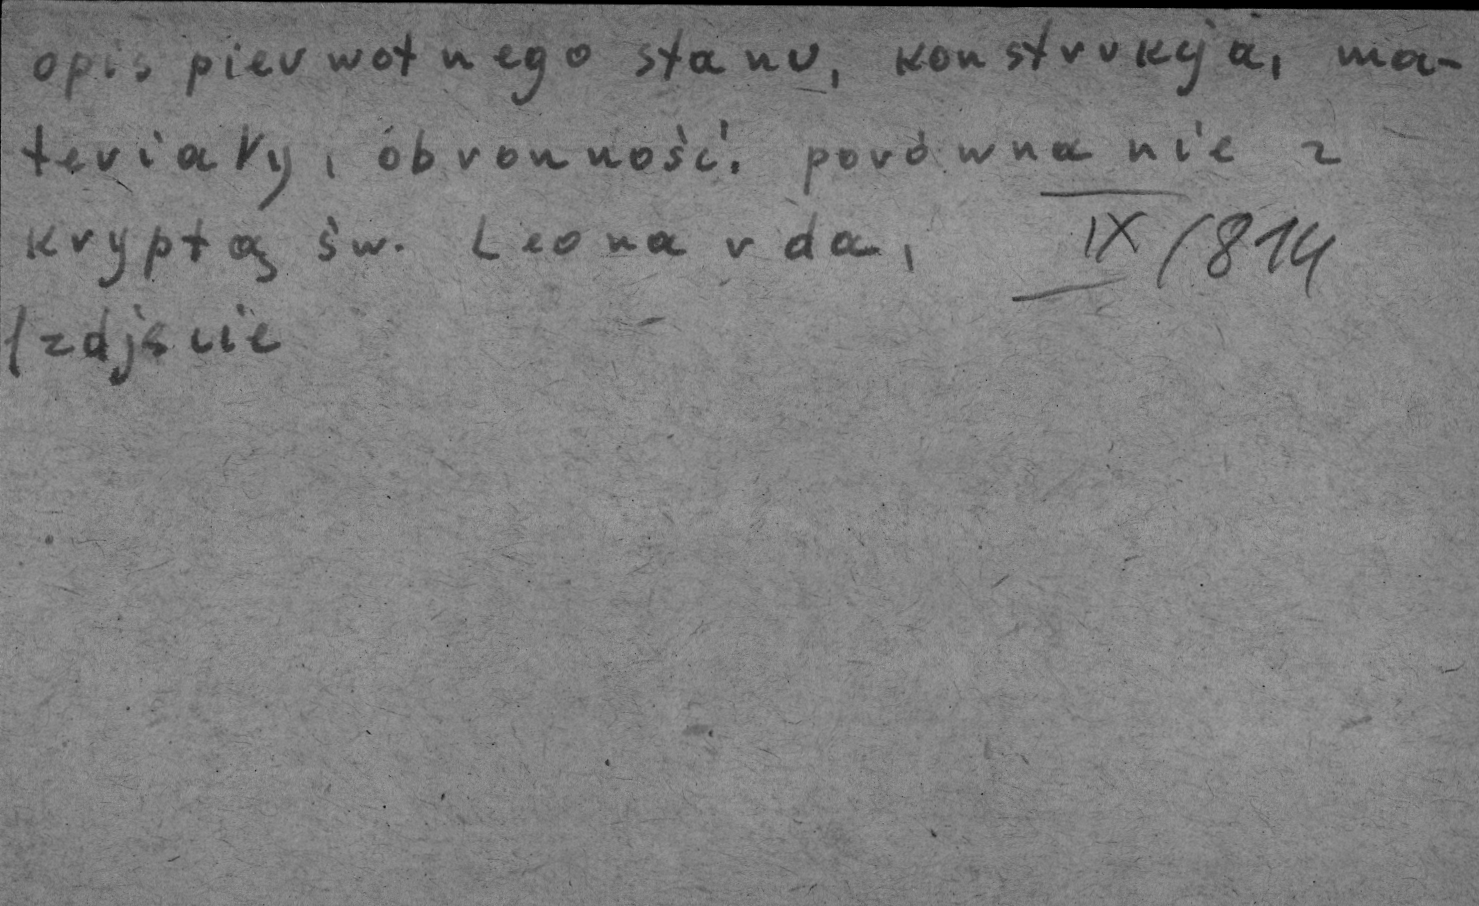 opis pierwotnego stanu, konstrukcja, ma-
teriały, obronność, porównanie z
kryptą św. Leonarda,
IX/814
/zdjęcie